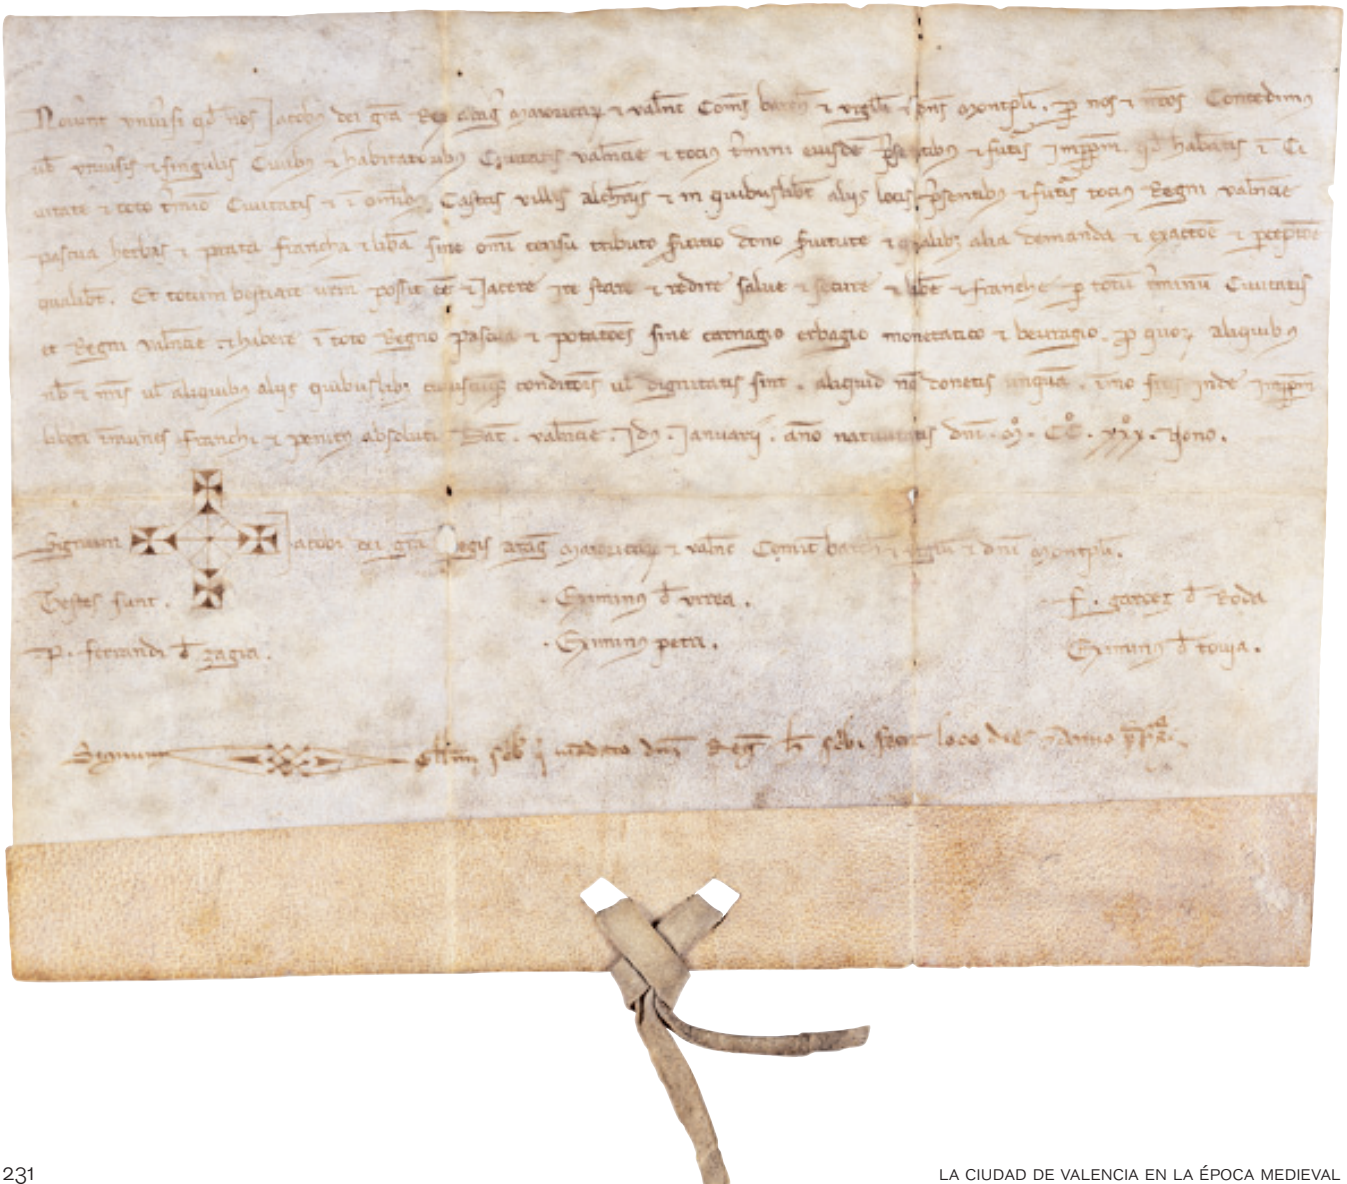 Nov̄int univ̄si qd̄ nos Jacobus dei grā Rex Arag̃ Maioricar̃ ⁊ valēn̄ Comes barch̄ ⁊ Urgelli ⁊ dn̄s Montpl̄i. p̱ nos ⁊ nr̄os Concedimus
vob̄ univ̄sis ⁊ singulis Civibus ⁊ habitatoribus Civitatis valn̄cie ⁊ tocius t̄mini eiusdē p̄sentibus ⁊ fut̄is Imppm̄. qd̄ habeatis ī Ci
vitate ⁊ toto t̄mīo Civitatis ⁊ ī om̄ibus Castris villis alch̄iis ⁊ in quibuslibet aliis locis p̄sentibus ⁊ fut̄is tocius Regni valn̄cie
pascua herbas ⁊ prata francha ⁊ lib̄a sine om̄i censu tributo s̄vitio dono s̄vitute ⁊ qualibȝ alia demanda ⁊ exactōe ⁊ p̄ceptōe
qualibet. Et totum bestiare vr̄m possit eē ⁊ Jacere ire stare ⁊ redire salve ⁊ secure ⁊ lib̄e ⁊ franche p̱ totū t̄minum Civitatis
et Regni valn̄cie ⁊ hibere ī toto Regno Pascua ⁊ potatōes sine carnagio erbagio monetatico ⁊ beuragio. p̱ quoȝ aliquibus
nob̄ ⁊ nr̄is ul̄ aliquibus aliis quibuslibȝ cuiuscūqȝ conditōis ul̄ dignitatis sint. aliquid nō donetis unquā. īmo sitis inde Imppm̄
liberi īmunes franchi ⁊ penitus absoluti Dat̄. valn̄cie. Idus. Januarii. āno nativitatis dn̄i. M̊. CC̊. xxx̊. Nono.
Signum Jacobi dei grā Regis Arag̃ Maioricar̃ ⁊ valn̄c̄ Comitis barch̄ ⁊ Urgelli ⁊ dn̄i Montpl̄i.
Testes sunt. · Eximinus d̄ urrea. F. garcez d̄ Roda
P. ferrandi d̄ zagra. · Eximinus petri. Eximinus d̄ tovia.
Signum Guill̄mi sc̄be q̄ mādato dn̄i Reg̃ h̄ sc̄bi fecit loco die ⁊ Anno
231
LA CIUDAD DE VALENCIA EN LA ÉPOCA MEDIEVAL